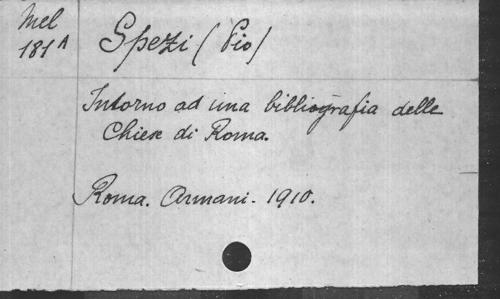 Mel
181 A
Spezi (Pio)
Intorno ad una bibliografia delle
Chiese di Roma.
Roma. Armani. 1910.